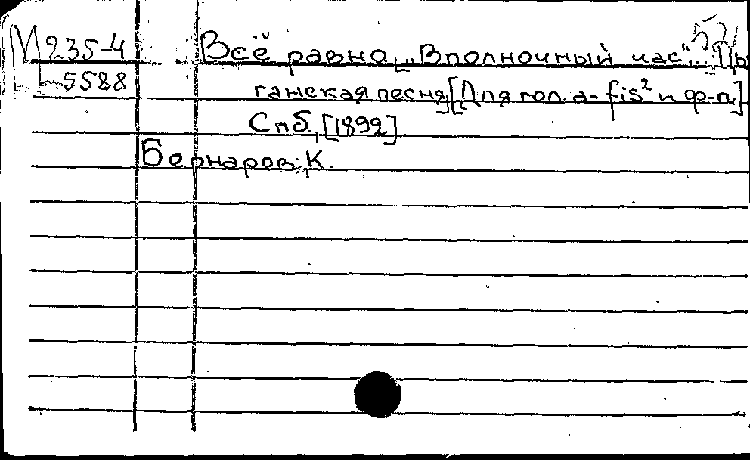 М 235-4 Всё равно. „В полночный час"... Цы
5588 ганская песня [Для гол. a-fis² и ф-п.]
Спб, [1892]
Бернаров, К.